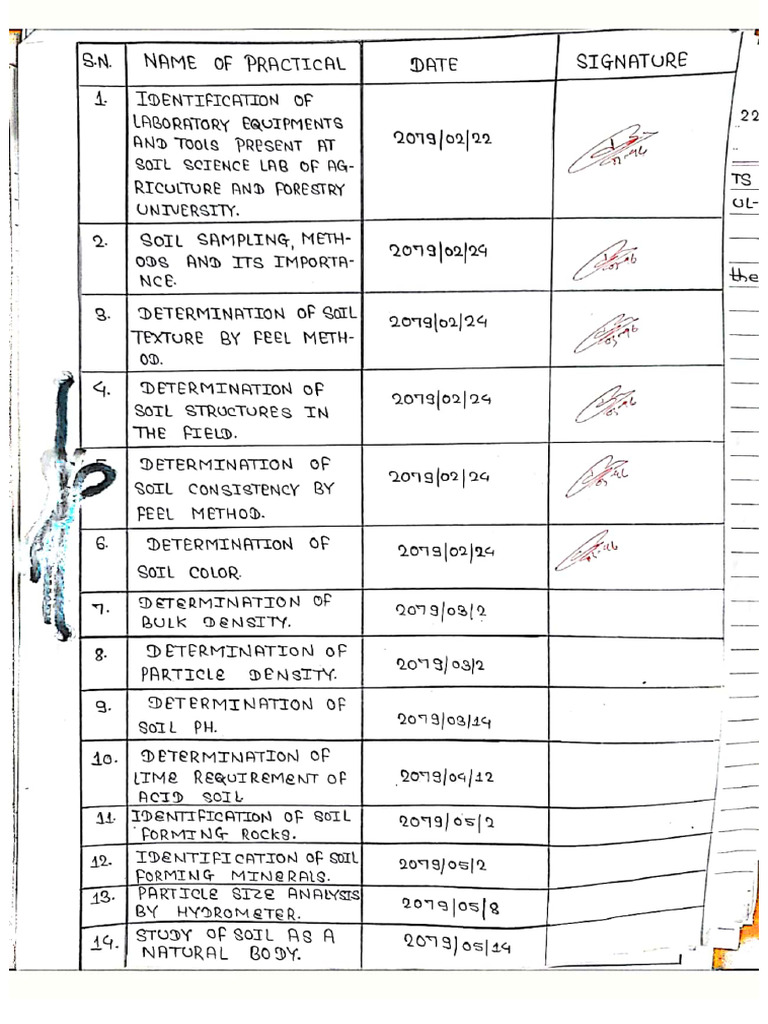 S.N. NAME OF PRACTICAL DATE SIGNATURE
1. IDENTIFICATION OF
LABORATORY EQUIPMENTS
AND TOOLS PRESENT AT
SOIL SCIENCE LAB OF AG-
RICULTURE AND FORESTRY
UNIVERSITY.
2079/02/22
2. SOIL SAMPLING, METH-
ODS AND ITS IMPORTA-
NCE.
2079/02/24
3. DETERMINATION OF SOIL
TEXTURE BY FEEL METH-
OD.
2079/02/24
4. DETERMINATION OF
SOIL STRUCTURES IN
THE FIELD.
2079/02/24
DETERMINATION OF
SOIL CONSISTENCY BY
FEEL METHOD.
2079/02/24
6. DETERMINATION OF
SOIL COLOR.
2079/02/24
7. DETERMINATION OF
BULK DENSITY.
2079/03/2
8. DETERMINATION OF
PARTICLE DENSITY.
2079/03/2
9. DETERMINATION OF
SOIL PH.
2079/03/14
10. DETERMINATION OF
LIME REQUIREMENT OF
ACID SOIL
2079/04/12
11. IDENTIFICATION OF SOIL
FORMING ROCKS.
2079/05/2
12. IDENTIFICATION OF SOIL
FORMING MINERALS.
2079/05/2
13. PARTICLE SIZE ANALYSIS
BY HYDROMETER.
2079/05/8
14. STUDY OF SOIL AS A
NATURAL BODY.
2079/05/14
22
TS
UL-
the